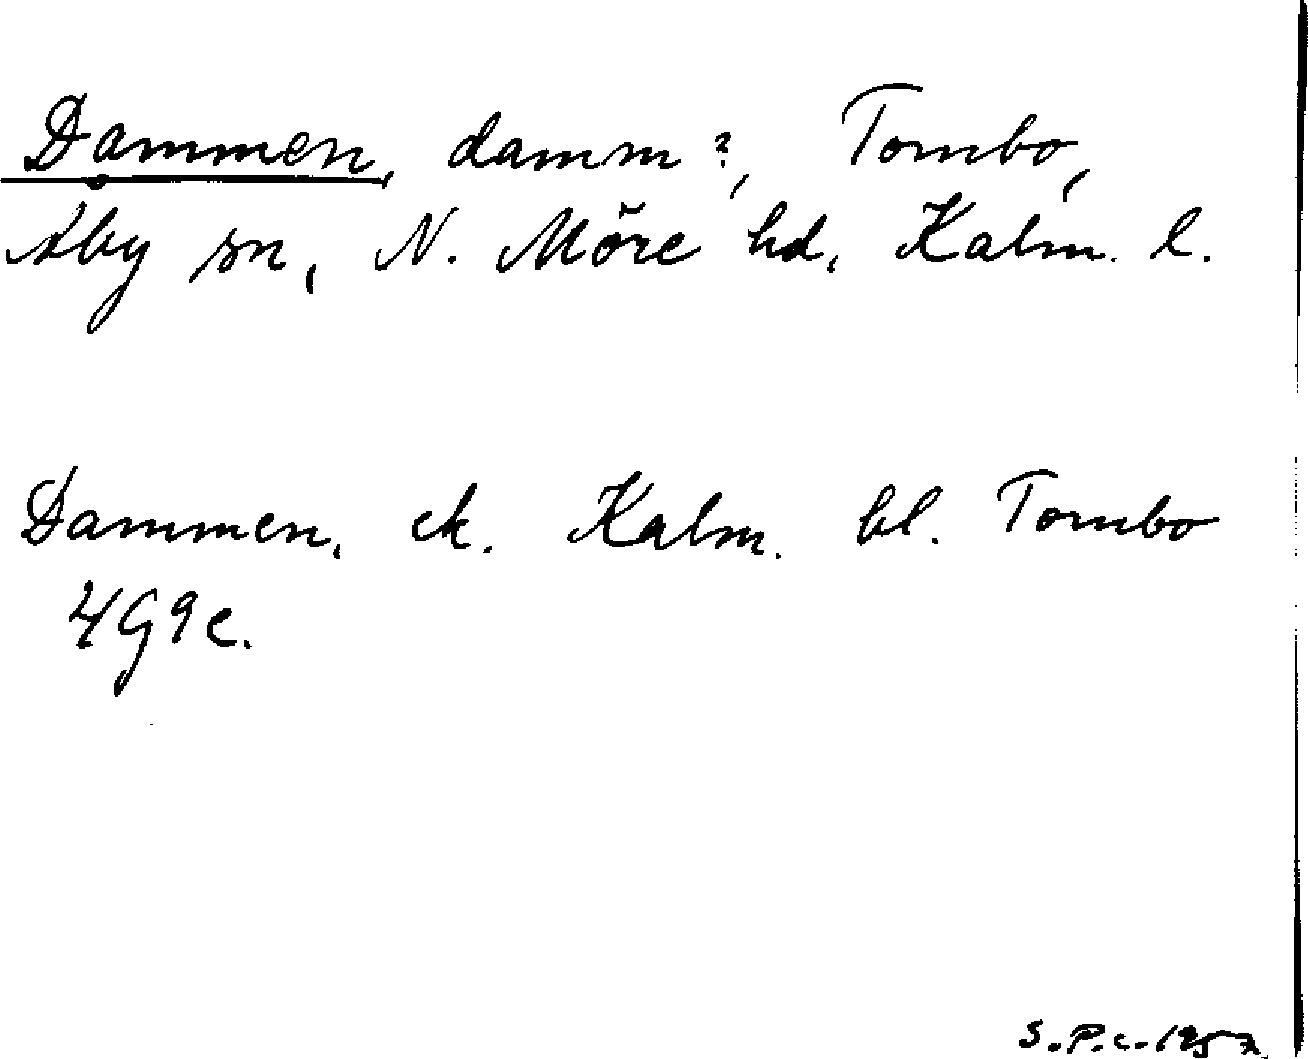 Dammen, damm?, Tombo,
Åby sn, N. Möre hd, Kalm. l.
Dammen, ek. Kalm. bl. Tombo
4G9e.
S.P.c. 1957